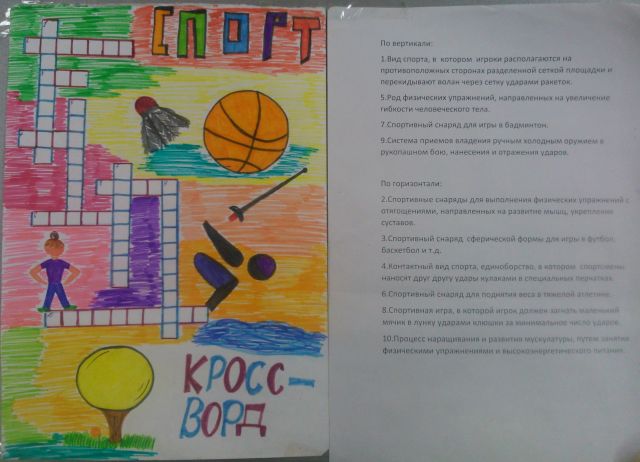 СПОРТ
КРОСС-
ВОРД
По вертикали:
1.Вид спорта, в котором игроки располагаются на
противоположных сторонах разделенной сеткой площадки и
перекидывают волан через сетку ударами ракеток.
5.Род физических упражнений, направленных на увеличение
гибкости человеческого тела.
7.Спортивный снаряд для игры в бадминтон.
9.Система приемов владения ручным холодным оружием в
рукопашном бою, нанесения и отражения ударов.
По горизонтали:
2.Спортивные снаряды для выполнения физических упражнений с
отягощениями, направленных на развитие мышц, укрепление
суставов.
3.Спортивный снаряд сферической формы для игры в футбол,
баскетбол и т.д.
4.Контактный вид спорта, единоборство, в котором спортсмены
наносят друг другу удары кулаками в специальных перчатках.
6.Спортивный снаряд для поднятия веса в тяжелой атлетике.
8.Спортивная игра, в которой игрок должен загнать маленький
мячик в лунку ударами клюшки за минимальное число ударов.
10.Процесс наращивания и развития мускулатуры, путем занятия
физическими упражнениями и высокоэнергетического питания.